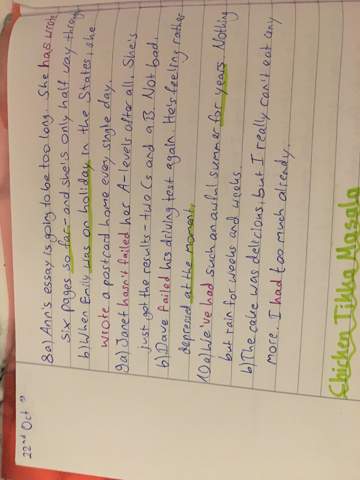 22nd Oct
8a) Ann's essay is going to be too long. She has wrote
six pages so far - and she's only half way throu
b) When Emily was on holiday in the States, she
wrote a postcard home every single day.
9a) Janet hasn't failed her A-levels after all. She's
just got the results - two Cs and a B. Not bad.
b) Dave failed his driving test again. He's feeling rather
depressed at the moment.
10a) We've had such an awful summer for years. Nothing
but rain for weeks and weeks.
b) The cake was delicious, but I really can't eat any
more. I had too much already.
Chicken Tikka Masala